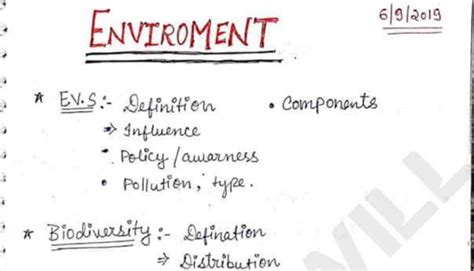 ENVIROMENT 6/9/2019
* EV.S:- Definition • Components
⇒ Influence
• Policy/awarness
• Pollution, type.
* Biodiversity:- Defination
⇒ Distribution
WILL